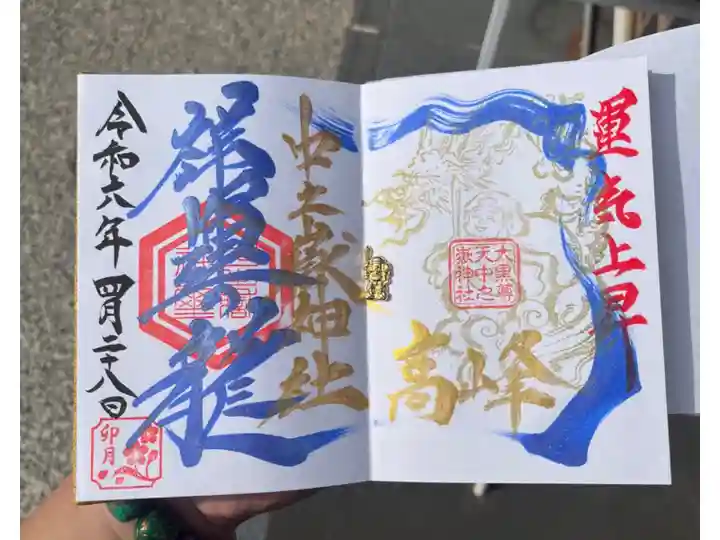 運気上昇
高峰
大黒尊
天中之
嶽神社
中之嶽神社
令和六年 四月二十八日
卯月